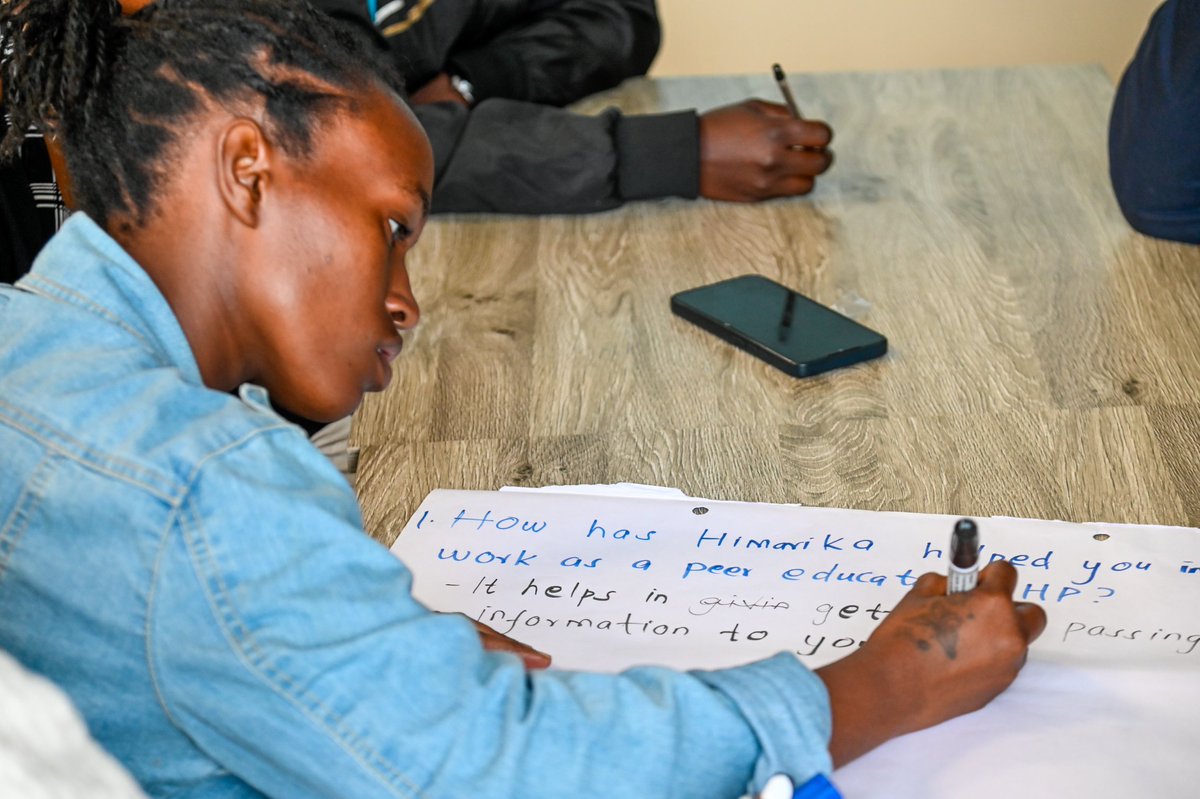 1. How has Himarika helped you in
work as a peer educat HP?
- It helps in givin gett passing
information to you